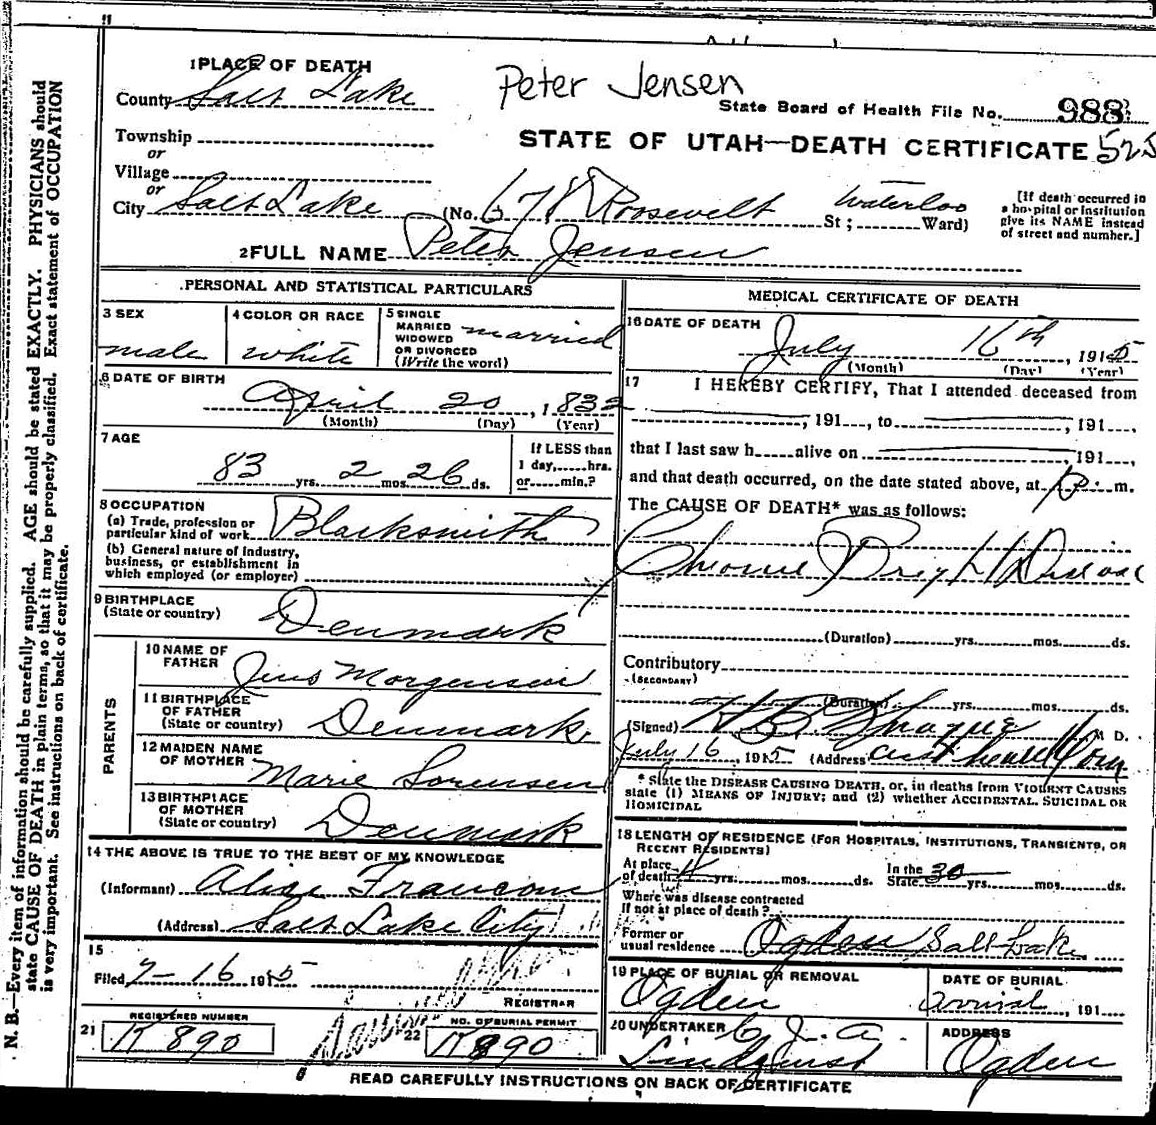 11
Peter Jensen
1 PLACE OF DEATH
County Salt Lake
State Board of Health File No. 988
Township
or
STATE OF UTAH—DEATH CERTIFICATE 525
Village
or
City Salt Lake (No. 678 Roosevelt St; Waterloo Ward)
[If death occurred in
a hospital or institution
give its NAME instead
of street and number.]
2 FULL NAME Peter Jensen
PERSONAL AND STATISTICAL PARTICULARS
3 SEX
male
4 COLOR OR RACE
white
5 SINGLE
MARRIED
WIDOWED
OR DIVORCED
(Write the word)
married
6 DATE OF BIRTH
April 20, 1832
(Month) (Day) (Year)
7 AGE
83 yrs. 2 mos. 26 ds.
If LESS than
1 day,......hrs.
or......min.?
8 OCCUPATION
(a) Trade, profession or
particular kind of work Blacksmith
(b) General nature of industry,
business, or establishment in
which employed (or employer)
9 BIRTHPLACE
(State or country) Denmark
PARENTS
10 NAME OF
FATHER Jens Morgensen
11 BIRTHPLACE
OF FATHER
(State or country) Denmark
12 MAIDEN NAME
OF MOTHER Marie Sorensen
13 BIRTHPLACE
OF MOTHER
(State or country) Denmark
14 THE ABOVE IS TRUE TO THE BEST OF MY KNOWLEDGE
(Informant) Alice Francom
(Address) Salt Lake City
15
Filed 7-16 1915
REGISTRAR
21 REGISTERED NUMBER
K 890
22 NO. OF BURIAL PERMIT
K 890
MEDICAL CERTIFICATE OF DEATH
16 DATE OF DEATH
July 16th, 1915
(Month) (Day) (Year)
17 I HEREBY CERTIFY, That I attended deceased from
, 191..., to , 191...,
that I last saw h......alive on , 191...,
and that death occurred, on the date stated above, at P. m.
The CAUSE OF DEATH* was as follows:
Chronic Bright Disease
(Duration) yrs. mos. ds.
Contributory
(SECONDARY)
(Duration) yrs. mos. ds.
(Signed) H B Sprague M D.
July 16, 1915 (Address
* State the DISEASE CAUSING DEATH, or, in deaths from VIOLENT CAUSES
state (1) MEANS OF INJURY; and (2) whether ACCIDENTAL, SUICIDAL OR
HOMICIDAL
18 LENGTH OF RESIDENCE (FOR HOSPITALS, INSTITUTIONS, TRANSIENTS, OR
RECENT RESIDENTS)
At place
of death yrs. mos. ds. In the
State 30 yrs. mos. ds.
Where was disease contracted
If not at place of death?
Former or
usual residence Ogden Salt Lake
19 PLACE OF BURIAL OR REMOVAL
Ogden
DATE OF BURIAL
arrival, 191
20 UNDERTAKER C. J. A.
Lindquist
ADDRESS
Ogden
READ CAREFULLY INSTRUCTIONS ON BACK OF CERTIFICATE
N. B.—Every item of information should be carefully supplied. AGE should be stated EXACTLY. PHYSICIANS should
state CAUSE OF DEATH in plain terms, so that it may be properly classified. Exact statement of OCCUPATION
is very important. See instructions on back of certificate.